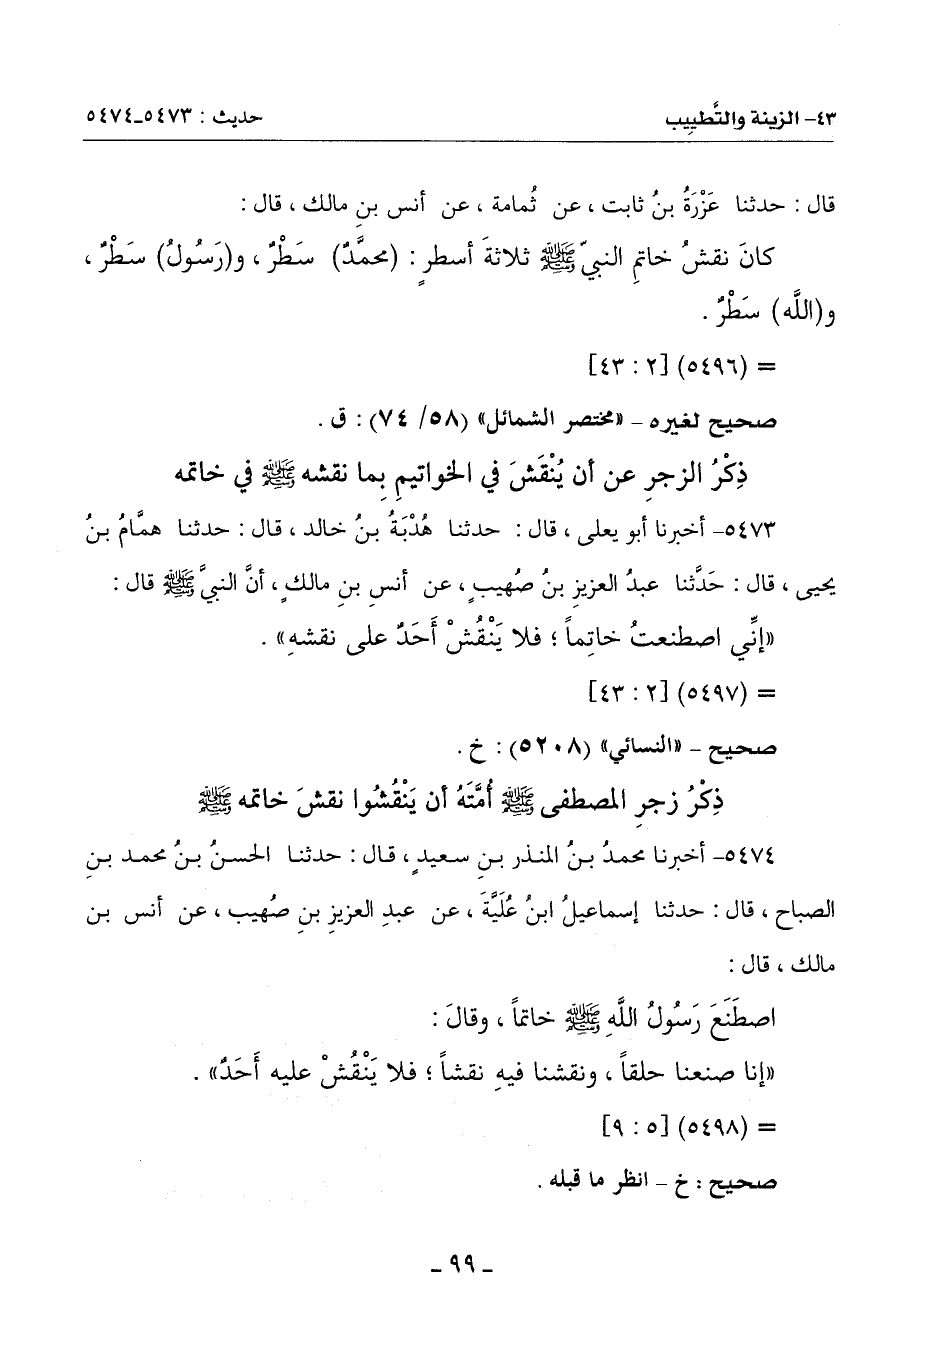 ٤٣- الزينة والتَّطيِيب
حديث : ٥٤٧٣ـ٥٤٧٤
قال : حدثنا عَزْرَةُ بنُ ثابت ، عن ثُمامة ، عن أنس بنِ مالك ، قال :
كانَ نقشُ خاتمِ النبيِّ ﷺ ثلاثةَ أسطرٍ : (محمَّدٌ) سَطْرٌ ، و(رَسُولُ) سَطْرٌ ،
و(اللَّه) سَطْرٌ .
= (٥٤٩٦) [٢ : ٤٣]
صحيح لغيره ـ «مختصر الشمائل» (٥٨/ ٧٤) : ق .
ذِكْرُ الزجرِ عن أن يُنْقَشَ في الخواتيمِ بِما نقشه ﷺ في خاتمه
٥٤٧٣- أخبرنا أبو يعلى ، قال : حدثنا هُدْبَةُ بنُ خالد ، قال : حدثنا همَّامُ بنُ
يحيى ، قال : حَدَّثنا عبدُ العزيزِ بنُ صُهيبٍ ، عن أنسِ بنِ مالكٍ ، أنَّ النبيَّ ﷺ قال :
«إنِّي اصطنعتُ خاتِماً ؛ فلا يَنْقُشْ أَحَدٌ على نقشهِ» .
= (٥٤٩٧) [٢ : ٤٣]
صحيح ـ «النسائي» (٥٢٠٨) : خ .
ذِكْرُ زجرِ المصطفى ﷺ أُمَّتَهُ أن يَنْقُشُوا نقشَ خاتمه ﷺ
٥٤٧٤- أخبرنا محمدُ بنُ المنذر بنِ سعيدٍ ، قال : حدثنا الحسنُ بنُ محمد بنِ
الصباح ، قال : حدثنا إسماعيلُ ابنُ عُلَيَّةَ ، عن عبدِ العزيزِ بنِ صُهيب ، عن أنس بن
مالك ، قال :
اصطَنَعَ رَسُولُ اللَّهِ ﷺ خاتماً ، وقالَ :
«إنا صنعنا حلقاً ، ونقشنا فيهِ نقشاً ؛ فلا يَنْقُشْ عليه أَحَدٌ» .
= (٥٤٩٨) [٥ : ٩]
صحيح : خ ـ انظر ما قبله .
ـ ٩٩ ـ